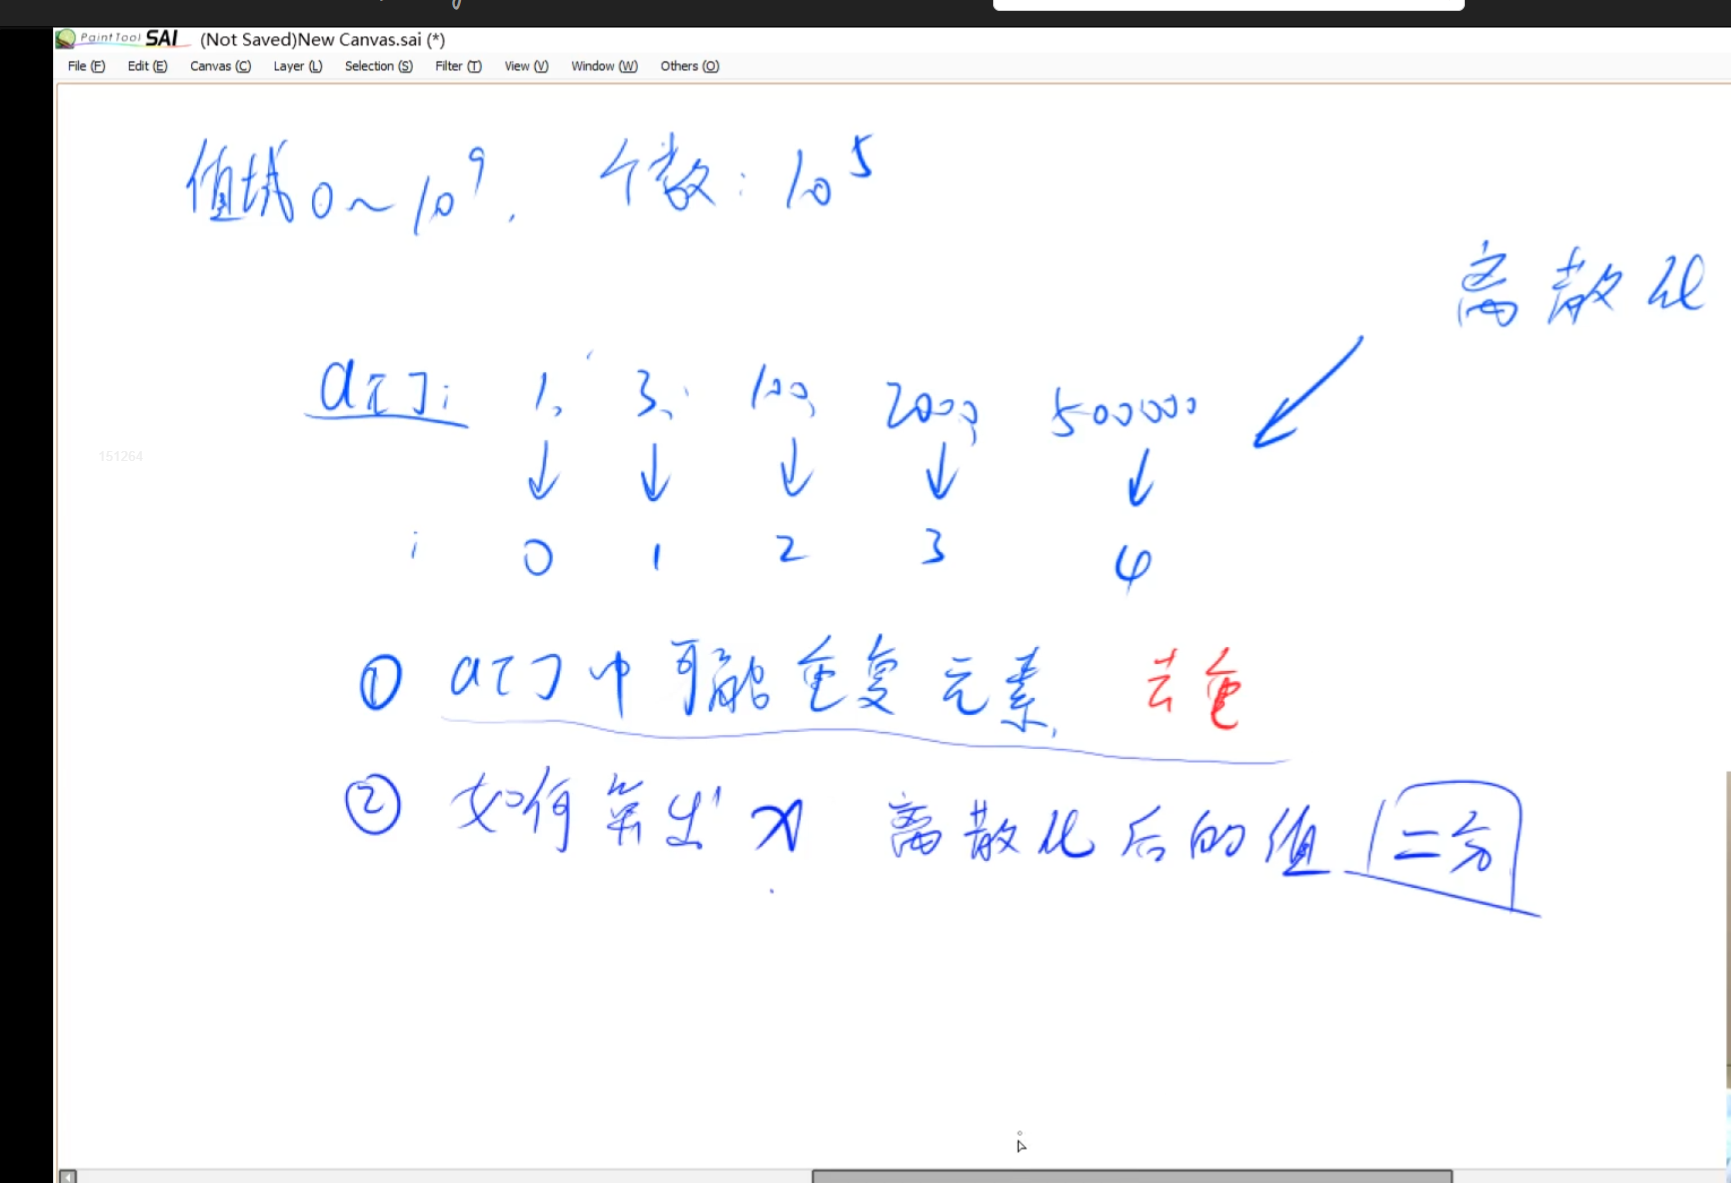 PaintTool SAI (Not Saved)New Canvas.sai (*)
File (F) Edit (E) Canvas (C) Layer (L) Selection (S) Filter (T) View (V) Window (W) Others (O)
值域0~10⁹, 个数: 10⁵
离散化
a[]: 1, 3, 100, 2000, 500000
151264
↓ ↓ ↓ ↓ ↓
i 0 1 2 3 4
① a[]中可能重复元素, 去重
② 如何算出 x 离散化后的值 二分